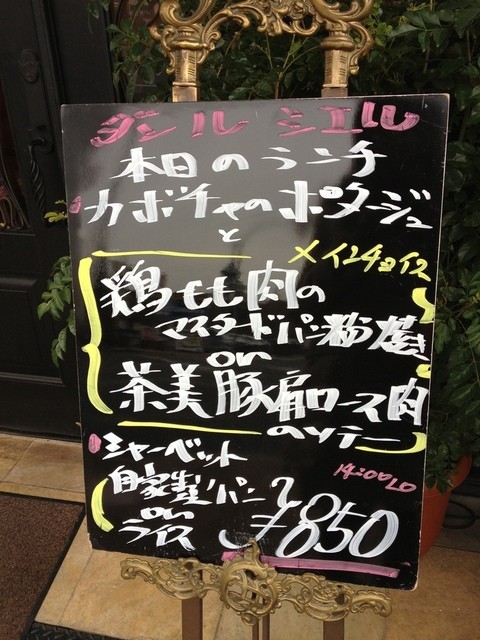 ダンルシエル
本日のランチ
カボチャのポタージュ
と
メインチョイス
鶏もも肉の
マスタードパン粉焼き
or
茶美豚肩ロース肉
のソテー
シャーベット
自家製パン
or
ライス
14:00LO
¥850